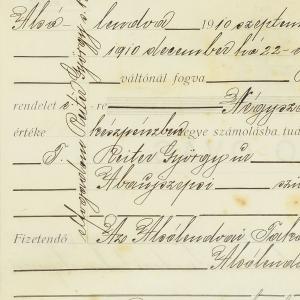 Alsó-lendva 1910 szeptem
1910 december hó 22-
váltónál fogva
rendelet é re Négysz
értéke készpénzben vegye számolásba tud
T. Reiter György úr
Abaujszepsi
Fizetendő Az Alsólendvai Taka
Alsólend
Reiter György s